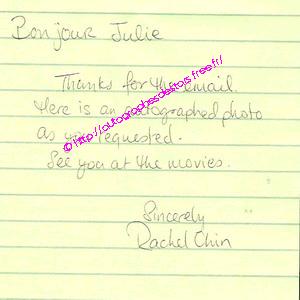 Bonjour Julie
Thanks for the email.
Here is an autographed photo
as you requested.
See you at the movies.
Sincerely
Rachel Chin
© http://autographesdestars.free.fr/